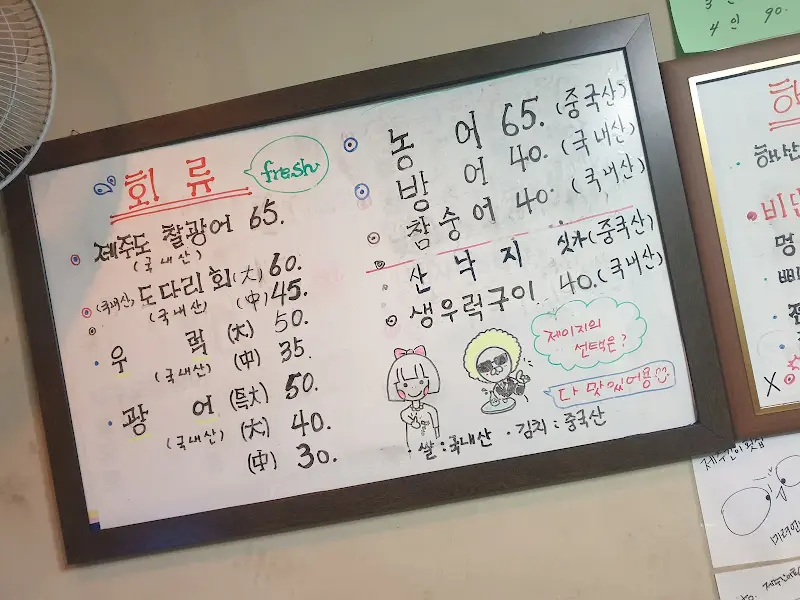 회 류
fresh
제주도 찰광어 65.
(국내산)
(국내산) 도다리회 (大) 60.
(국내산) (中) 45.
우 럭 (大) 50.
(국내산) (中) 35.
광 어 (특大) 50.
(국내산) (大) 40.
(中) 30.
농 어 65. (중국산)
방 어 40. (국내산)
참숭어 40. (국내산)
산 낙 지 싯가 (중국산)
생우럭구이 40. (국내산)
제이지의
선택은?
다 맛있어용
· 쌀 : 국내산 · 김치 : 중국산
4인 90.
해
해산
비단
멍
삐
X